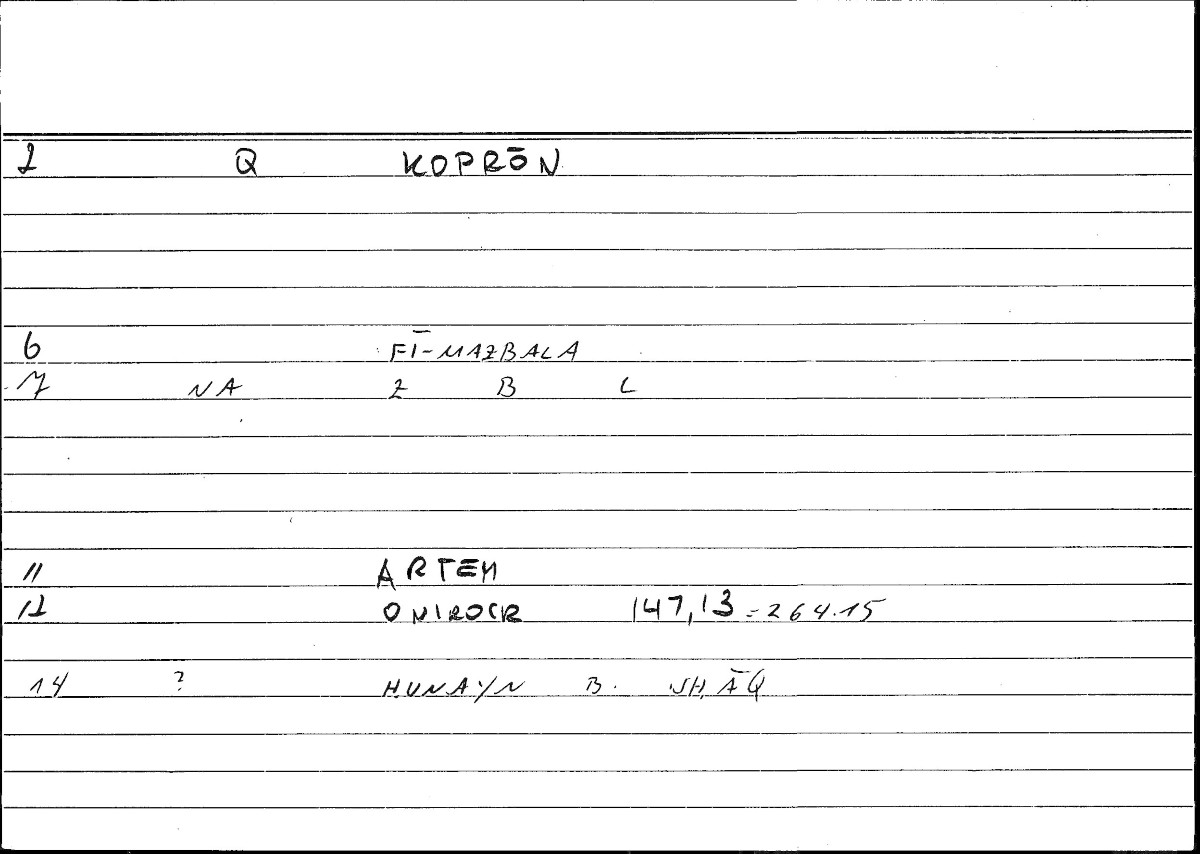 2 Q KOPRŌN
6 FĪ-MAZBALA
7 NA Z B L
11 ARTEM
12 ONIROCR 147,13 = 264.15
14 ? ḤUNAYN B. ISḤĀQ